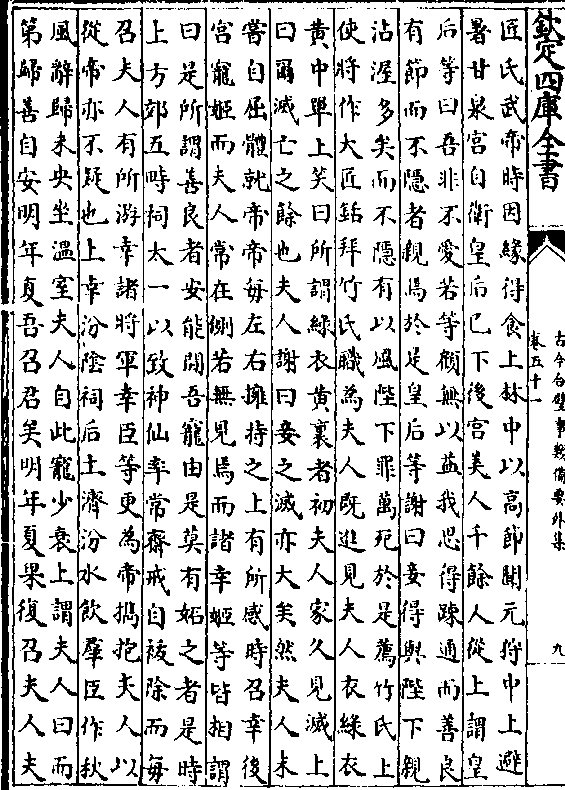 欽定四庫全書
古今合璧事類備要外集
卷五十一
九
匠氏武帝時因緣得食上林中以高節聞元狩中上避
暑甘泉宮自衛皇后已下後宮美人千餘人從上謂皇
后等曰吾非不愛若等顧無以益我思得踈通而善良
有節而不隱者親焉於是皇后等謝曰妾得與陛下親
沾渥多矣而不隱有以風陛下罪萬死於是薦竹氏上
使將作大匠銛拜竹氏職為夫人既進見夫人衣緑衣
黄中單上笑曰所謂緑衣黄裏者初夫人家久見滅上
曰爾滅亡之餘也夫人謝曰妾之滅亦大矣然夫人未
嘗自屈體就帝帝每左右擁持之上有所感時召幸後
宮寵姬而夫人常在側若無見焉而諸幸姬等皆相謂
曰是所謂善良者安能間吾寵由是莫有妬之者是時
上方郊五畤祠太一以致神仙率常齋戒自祓除而每
召夫人有所游幸諸將軍幸臣等更為帝攜抱夫人以
從帝亦不疑也上幸汾陰祠后土濟汾水飲羣臣作秋
風辭歸未央坐溫室夫人自此寵少衰上謂夫人曰而
第歸善自安明年夏吾召君矣明年夏果復召夫人夫